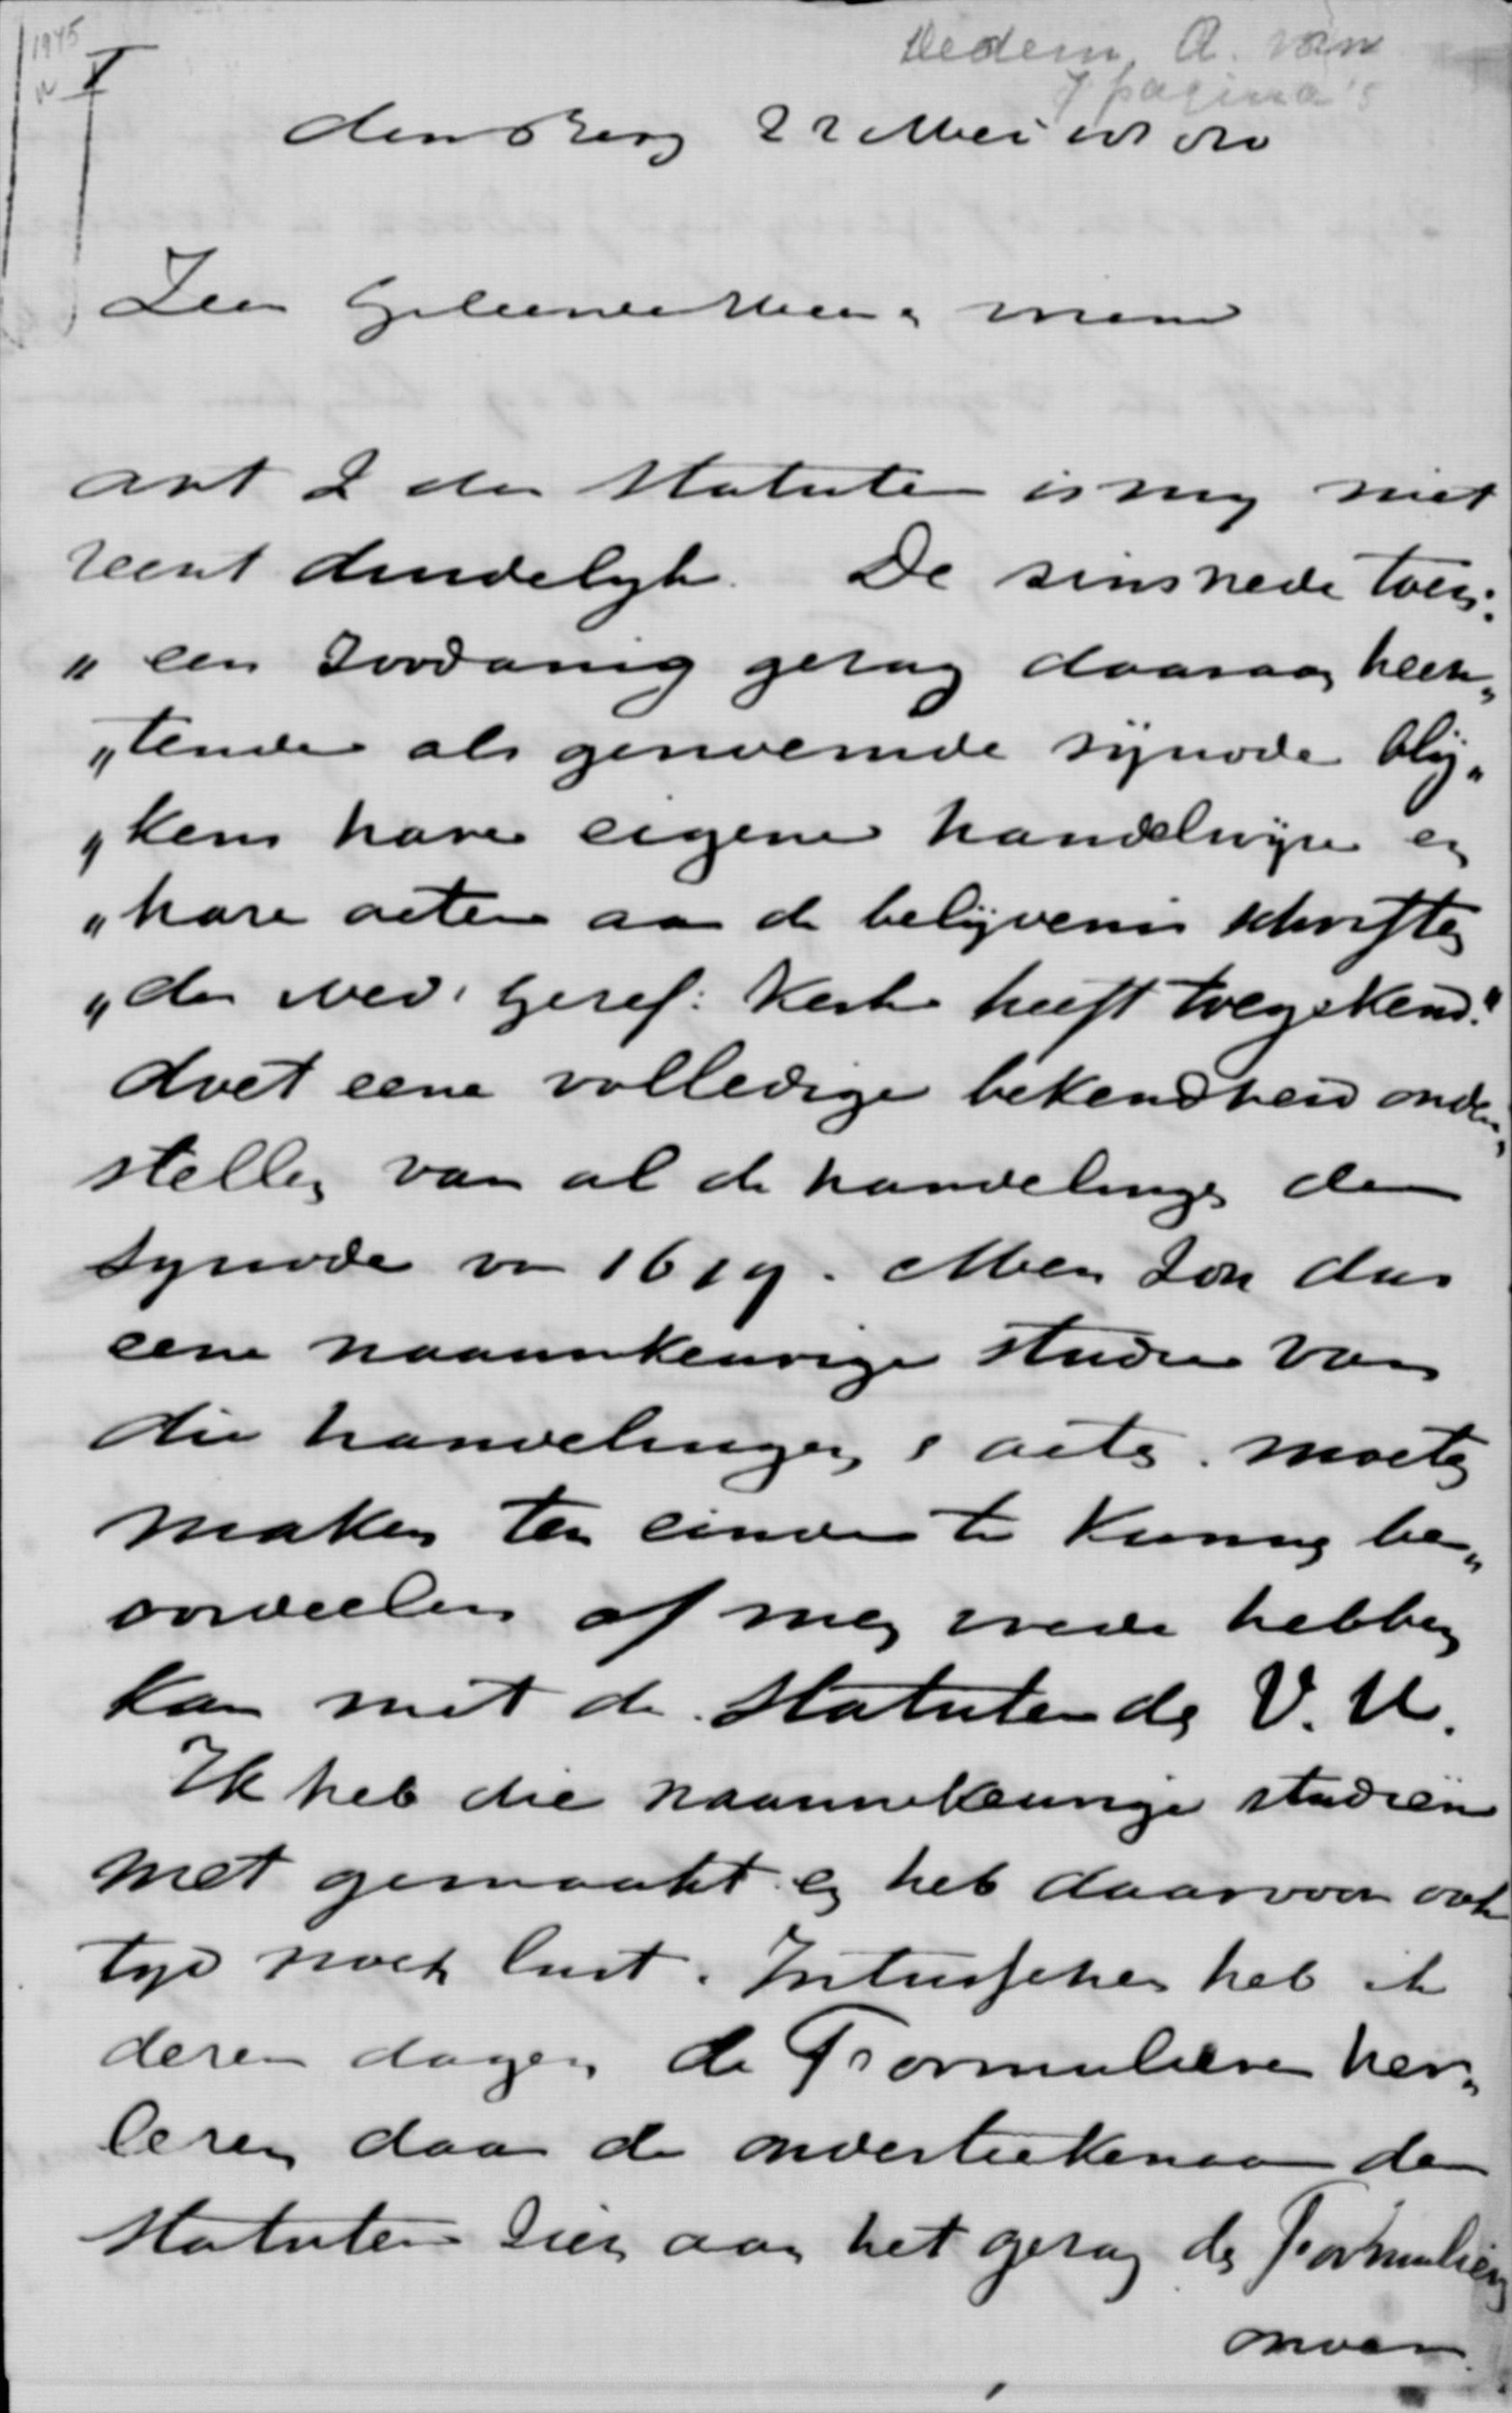 1945
I
Dedem, A. van
7 pagina's
den Berg 22 Mei
Zeer Geleerde Heer
art 2 der Statuten is mij niet
recht duidelyk. De sinsnede toch:
„een zoodanig gezag daaraan hech„
„tende als genoemde synode bly„
„kens hare eigene handelwyze en
„hare acten aan de belijdenis schriften
„der Ned. Geref: Kerk heeft toegekend."
doet eene volledige bekendheid onder„
stellen van al de handelingen der
synode van 1619. Men zou dus
eene naauwkeurige studie van
die handelingen & acts. moeten
maken ten einde te kunnen be„
oordeelen of men vrede hebben
kan met de Statuten der V. U.
Ik heb die naauwkeurige studiën
niet gemaakt en heb daarvoor ook
tyd noch lust. Intusschen heb ik
dezer dagen de Formulieren her„
lezen daar de onderteekenaar der
Statuten zich aan het gezag der Formulieren
onder